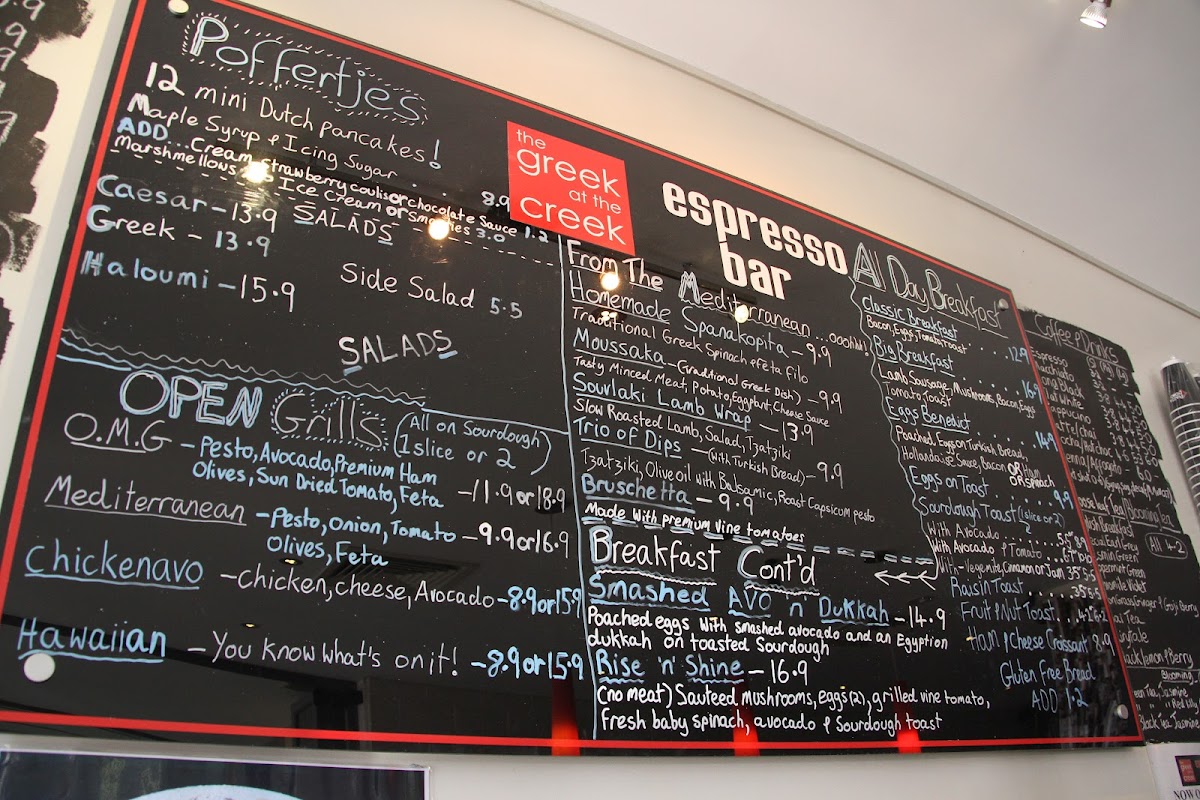 Poffertjes
12 mini Dutch pancakes!
Maple Syrup & Icing Sugar . . . 8.9
ADD... Cream strawberry coulis or chocolate Sauce 1.2
Marshmellows Ice Cream or Smarties 3.0
SALADS
Caesar - 13.9
Greek - 13.9
Haloumi - 15.9
Side Salad 5.5
SALADS
OPEN Grills
(All on Sourdough
1 slice or 2)
O.M.G - Pesto, Avocado, Premium Ham
Olives, Sun Dried Tomato, Feta - 11.9 or 18.9
Mediterranean - Pesto, Onion, Tomato - 9.9 or 16.9
Olives, Feta
Chickenavo - chicken, cheese, Avocado - 8.9 or 15.9
Hawaiian - You know what's on it! - 8.9 or 15.9
the
greek
at the
creek
espresso
bar
From The Mediterranean...ooohh!
Homemade Spanakopita - 9.9
Traditional Greek Spinach & Feta Filo
Moussaka - (Traditional Greek Dish) - 9.9
Tasty Minced Meat, Potato, Eggplant, Cheese Sauce
Sourlaki Lamb Wrap - 13.9
Slow Roasted Lamb, Salad, Tzatziki
Trio of Dips - (with Turkish Bread) - 9.9
Tzatziki, Olive oil with Balsamic, Roast Capsicum pesto
Bruschetta - 9.9
Made with premium vine tomatoes
Breakfast Cont'd
Smashed AVO n' Dukkah - 14.9
Poached eggs with smashed avocado and an Egyption
dukkah on toasted Sourdough
Rise 'n' Shine - 16.9
(no meat) Sauteed mushrooms, eggs (2), grilled vine tomato,
Fresh baby spinach, avocado & Sourdough toast
All Day Breakfast
Classic Breakfast
Bacon, Eggs, Tomato, Toast . . 12.9
Big Breakfast . . . . . 16.9
Lamb Sausage, Mushrooms, Bacon, Eggs
Tomato Toast
Eggs Benedict . . . . . 14.9
Poached Eggs on Turkish Bread,
Hollandaise Sauce, Bacon OR Ham
OR Spinach
Eggs on Toast . . . . 9.9
Sourdough Toast (1 slice or 2)
With Avocado
With Avocado & Tomato
With - Vegemite, Cinnamon or Jam
Raisin Toast
Fruit & Nut Toast
Ham & Cheese Croissant 8.9
Gluten Free Bread
ADD 1.2
Coffee & Drinks
Long Black
Flat White
All 4.2
the
greek